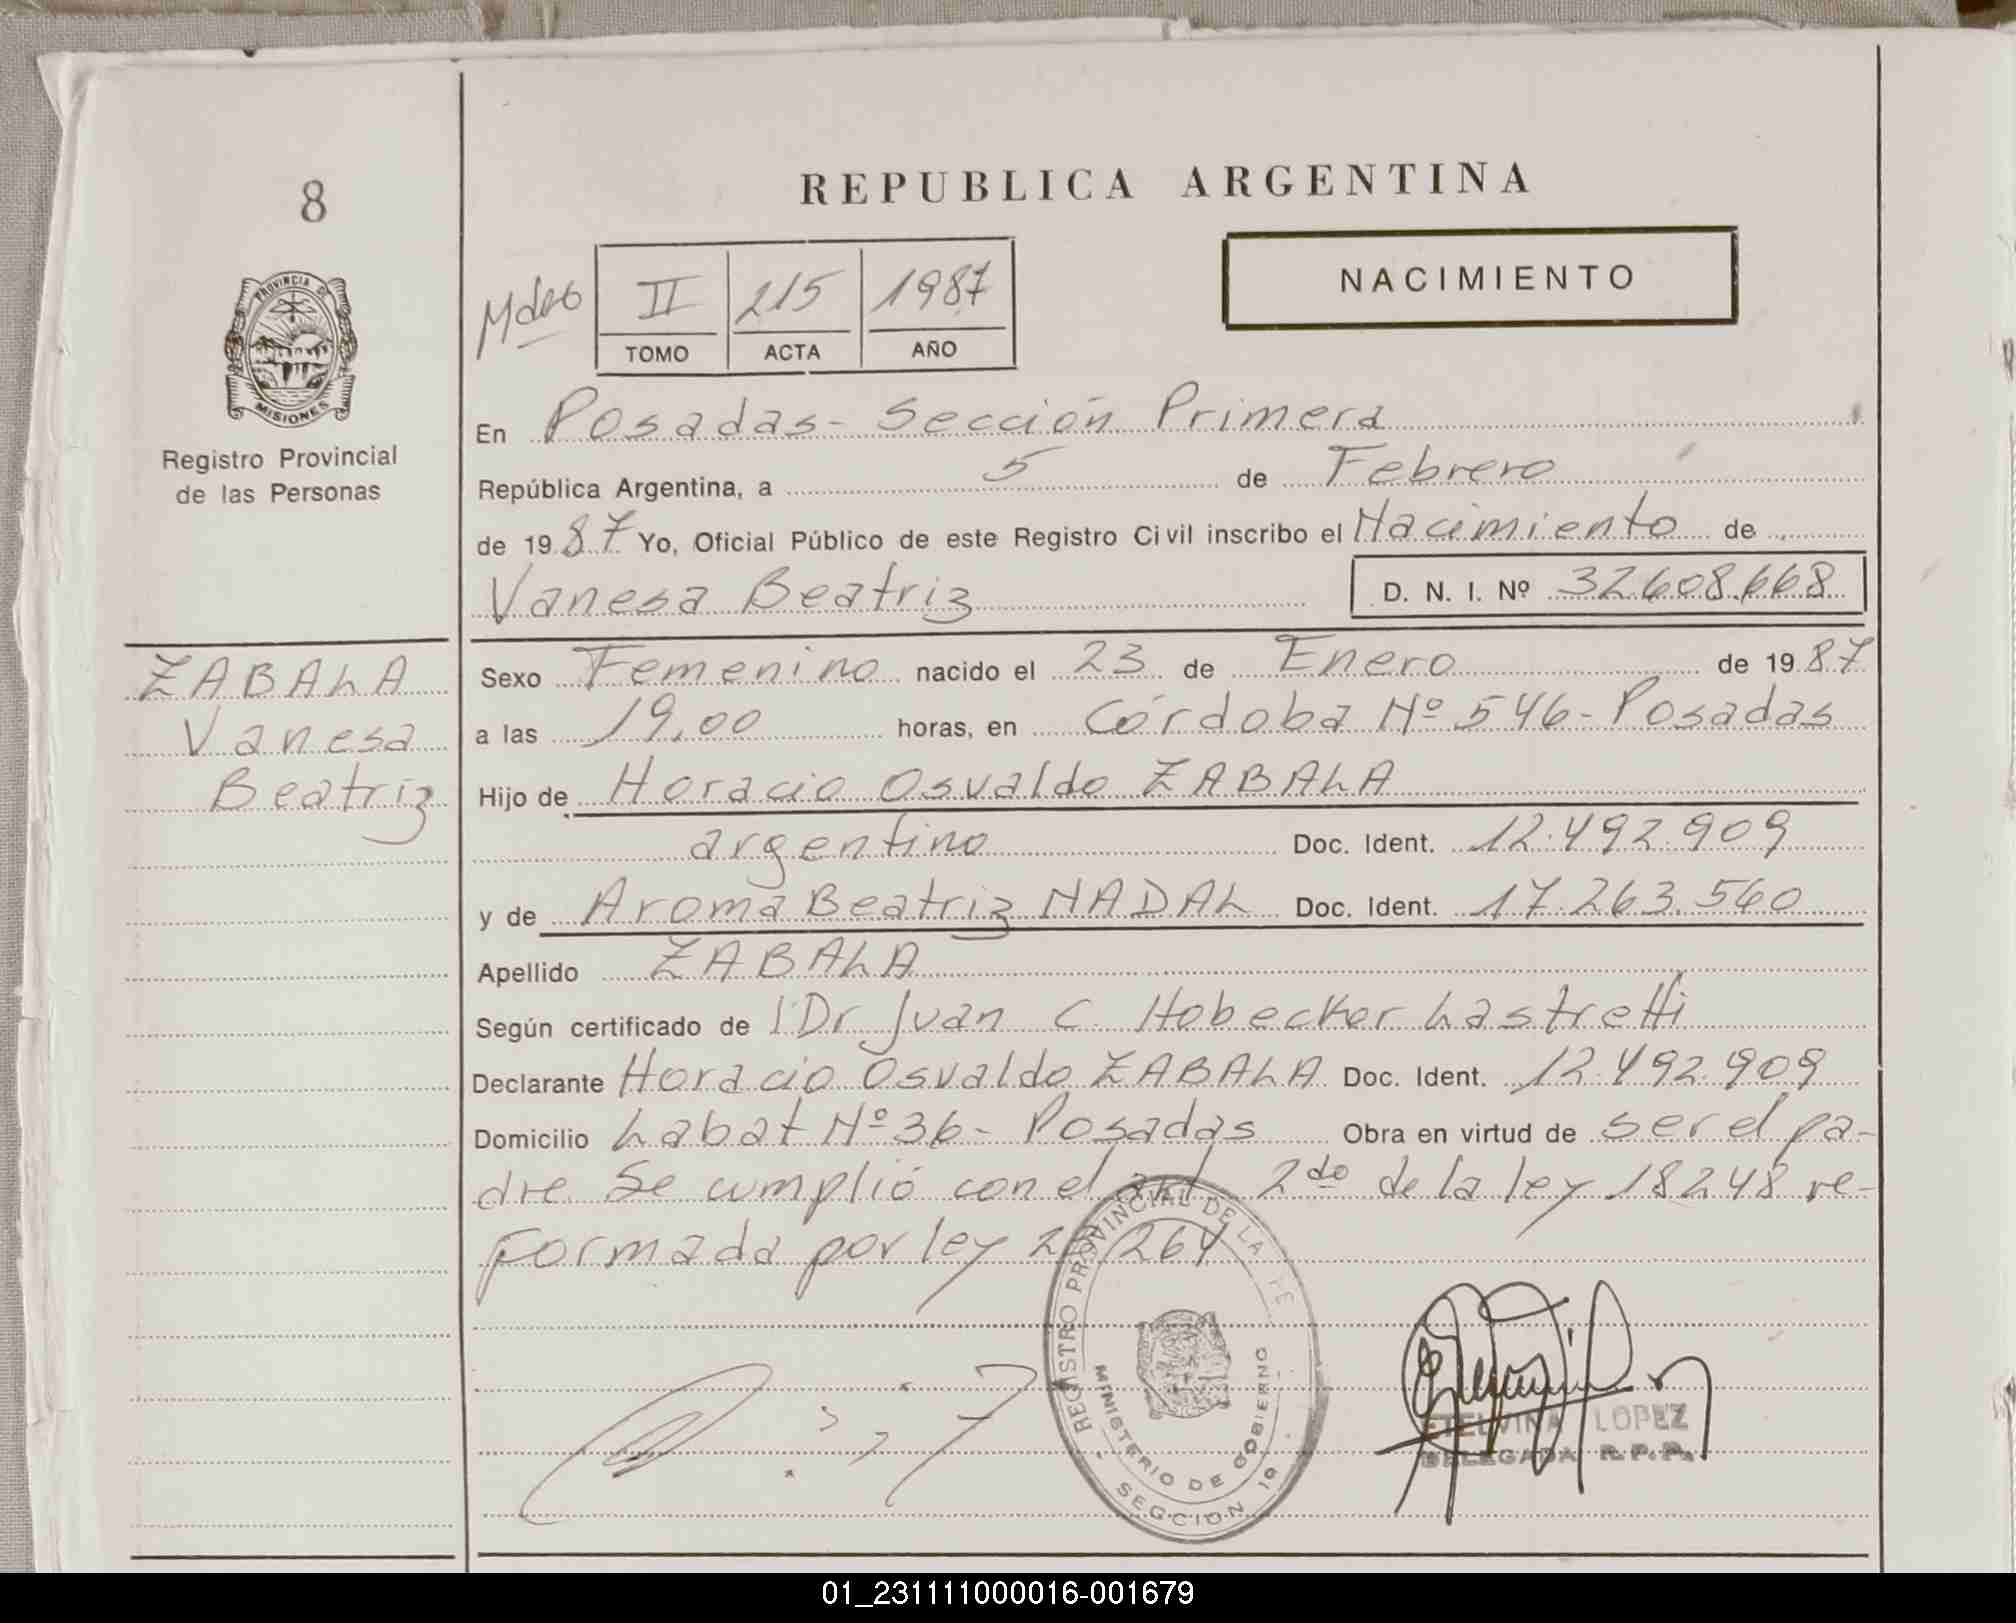 8
REPUBLICA ARGENTINA
NACIMIENTO
II 215 1987
TOMO ACTA AÑO
PROVINCIA DE
MISIONES
Registro Provincial
de las Personas
En Posadas - Sección Primera
República Argentina, a 5 de Febrero
de 1987 Yo, Oficial Público de este Registro Civil inscribo el Nacimiento de
Vanesa Beatriz D. N. I. Nº 32.608.668
ZABALA
Vanesa
Beatriz
Sexo Femenino nacido el 23 de Enero de 1987
a las 19,00 horas, en Córdoba Nº 546 - Posadas
Hijo de Horacio Osvaldo ZABALA
argentino Doc. Ident. 12.492.909
y de Aroma Beatriz NADAL Doc. Ident. 17.263.560
Apellido ZABALA
Según certificado de Dr Juan C. Hobecker Lastretti
Declarante Horacio Osvaldo ZABALA Doc. Ident. 12.492.909
Domicilio Labat Nº 36 - Posadas Obra en virtud de ser el pa-
dre. Se cumplió con el art 2do de la ley 18248 re-
formada por ley 264
REGISTRO PROVINCIAL DE LA
MINISTERIO DE GOBIERNO
SECCION 1a
ETELVINA LOPEZ
DELEGADA R.P.P.
01_231111000016-001679